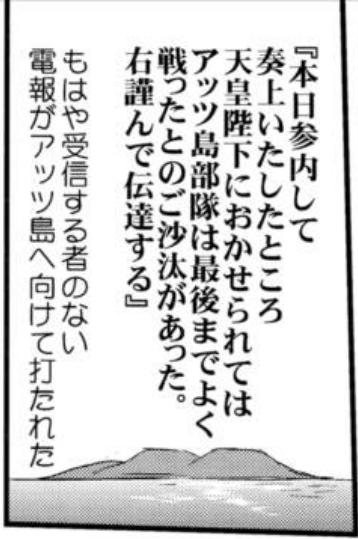 『本日参内して
奏上いたしたところ
天皇陛下におかせられては
アッツ島部隊は最後までよく
戦ったとのご沙汰があった。
右謹んで伝達する』
もはや受信する者のない
電報がアッツ島へ向けて打たれた